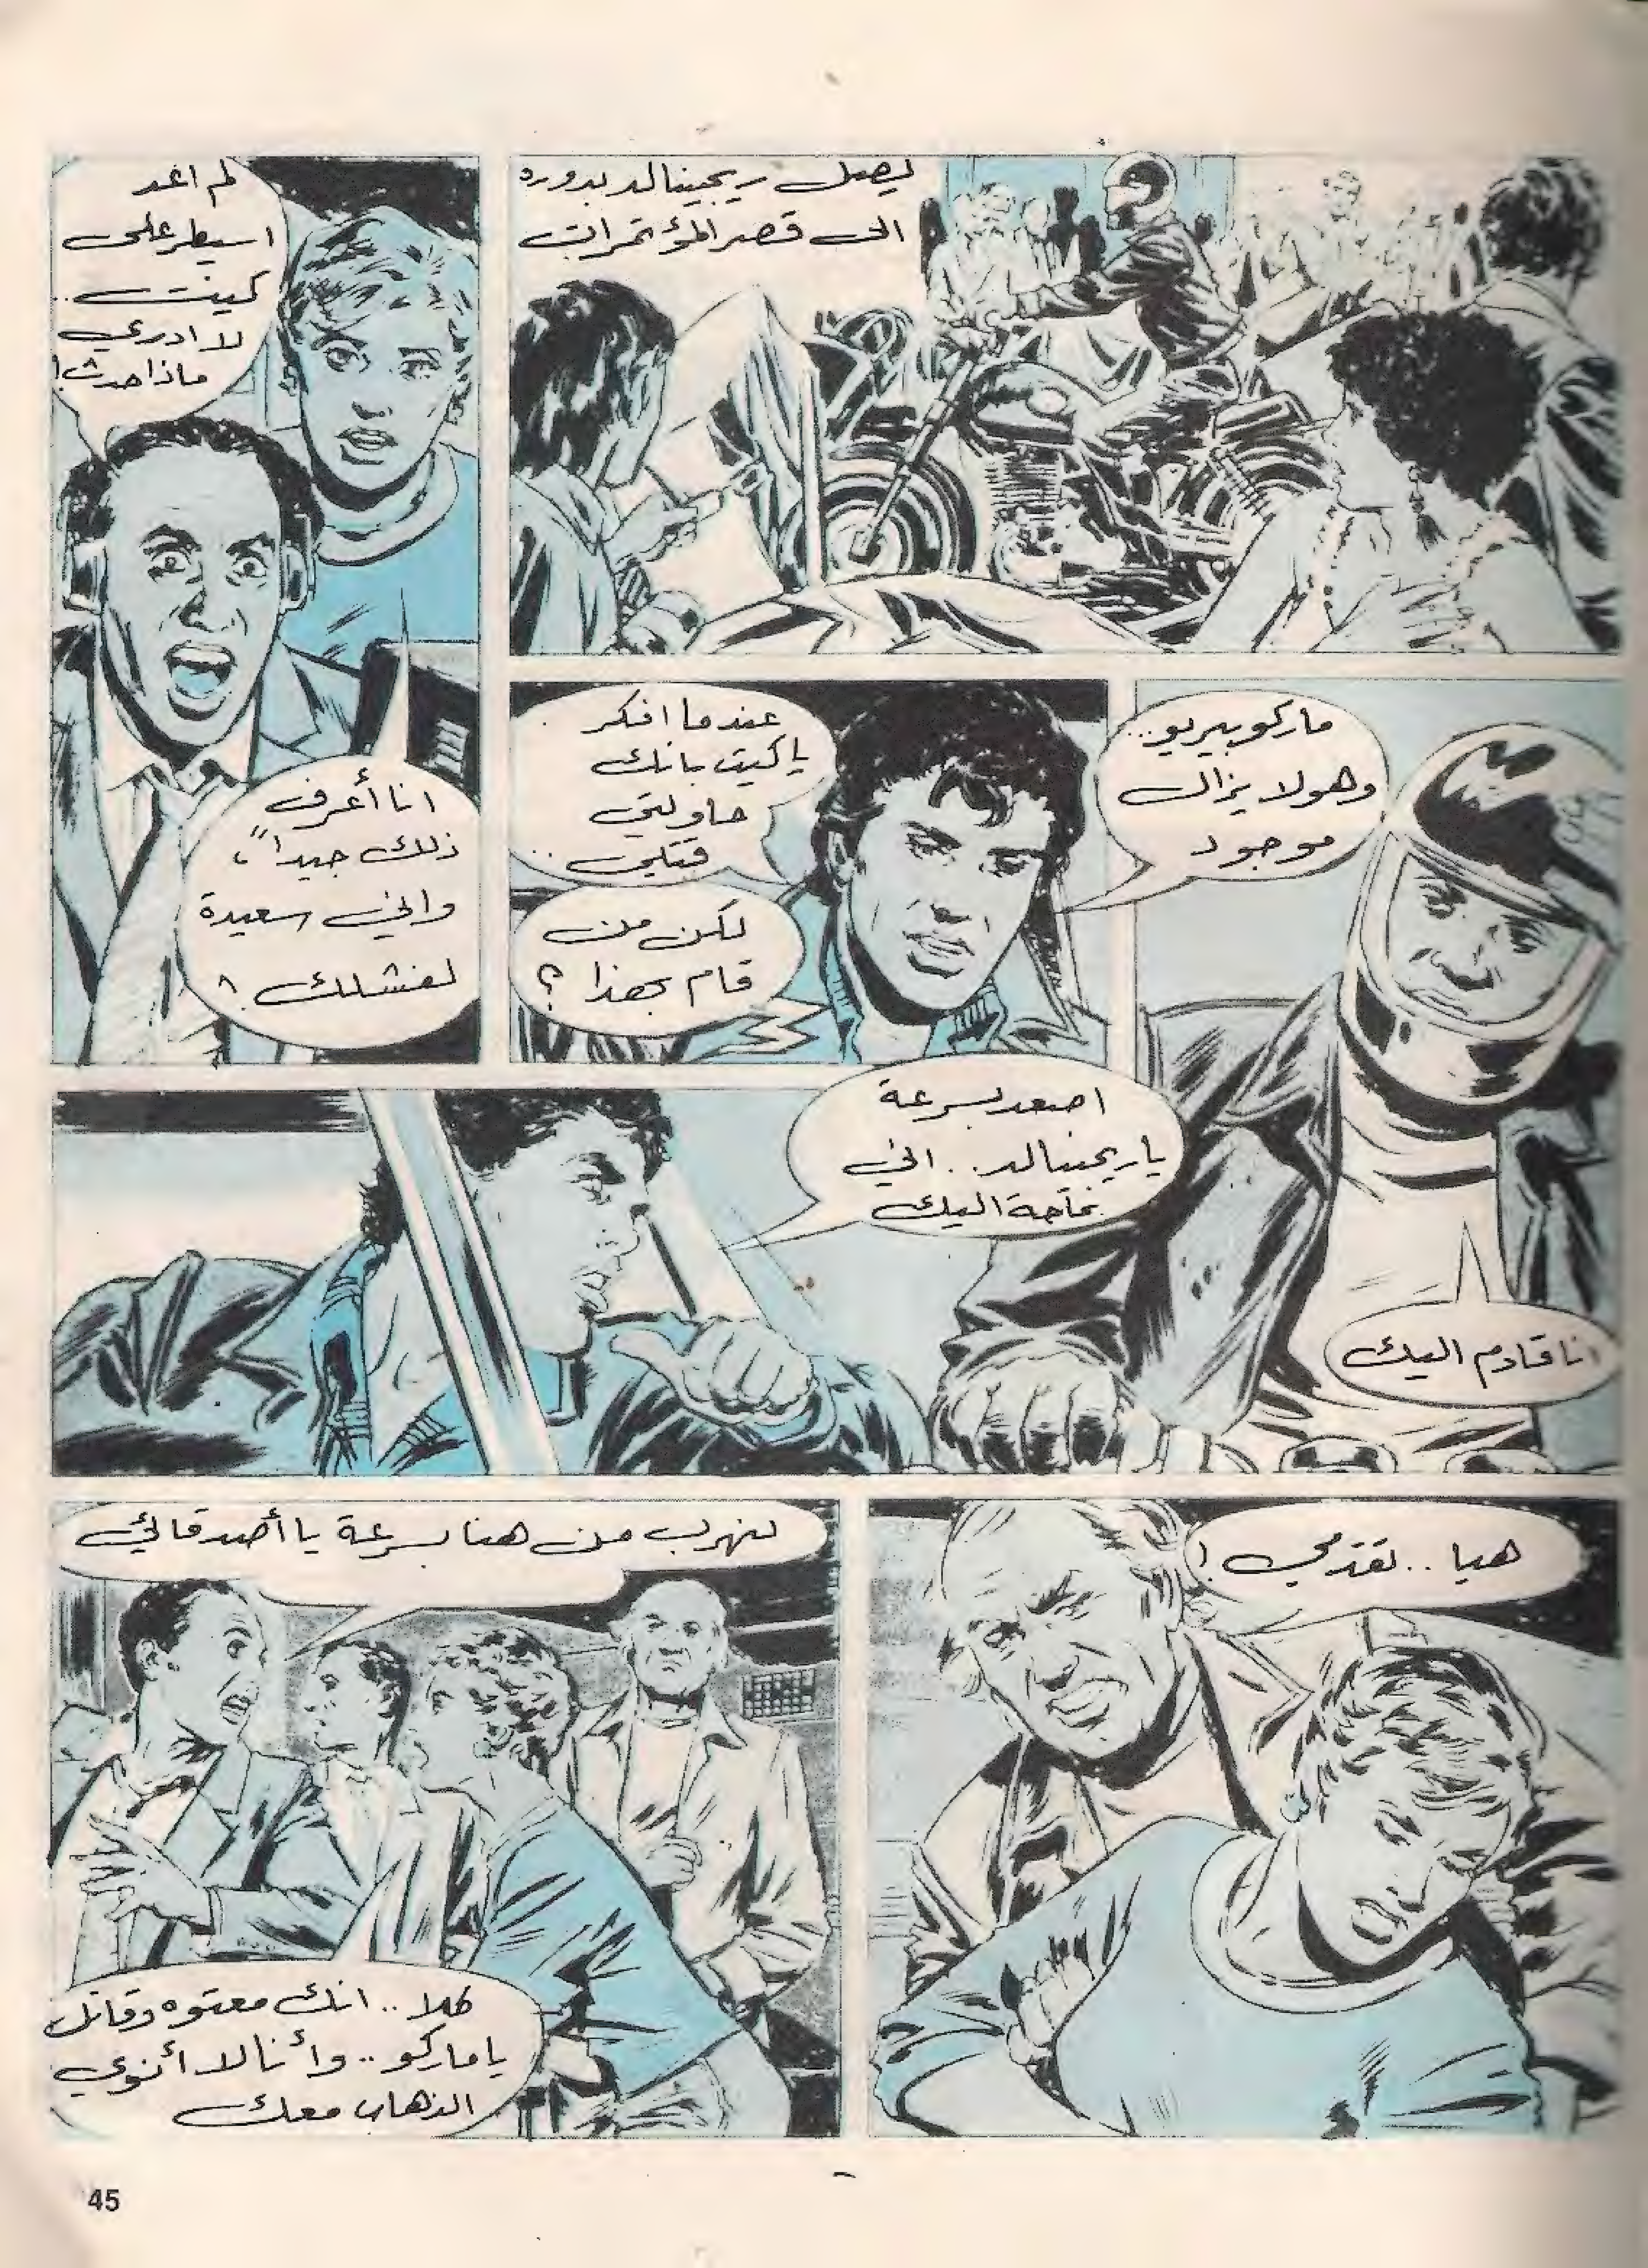 ليصل ريجينالد بدوره
الى قصر المؤتمرات
لم اعد
اسيطر على
كيت ..
لا ادري
ماذا حدث!
انا أعرف
ذلك جيداً،
واني سعيدة
لفشلك !
ماركو بيريو...
وهو لا يزال
موجود
عندما افكر
يا كيت بانك
حاولتي
قتلي ..
لكن من
قام بهذا ؟
انا قادم اليك
اصعد بسرعة
يا ريجينالد .. اني
بحاجة اليك
هيا .. تقدمي !
لنهرب من هنا بسرعة يا أصدقائي
كلا .. انك معتوه وقاتل
يا ماركو .. وأنا لا أنوي
الذهاب معك
45